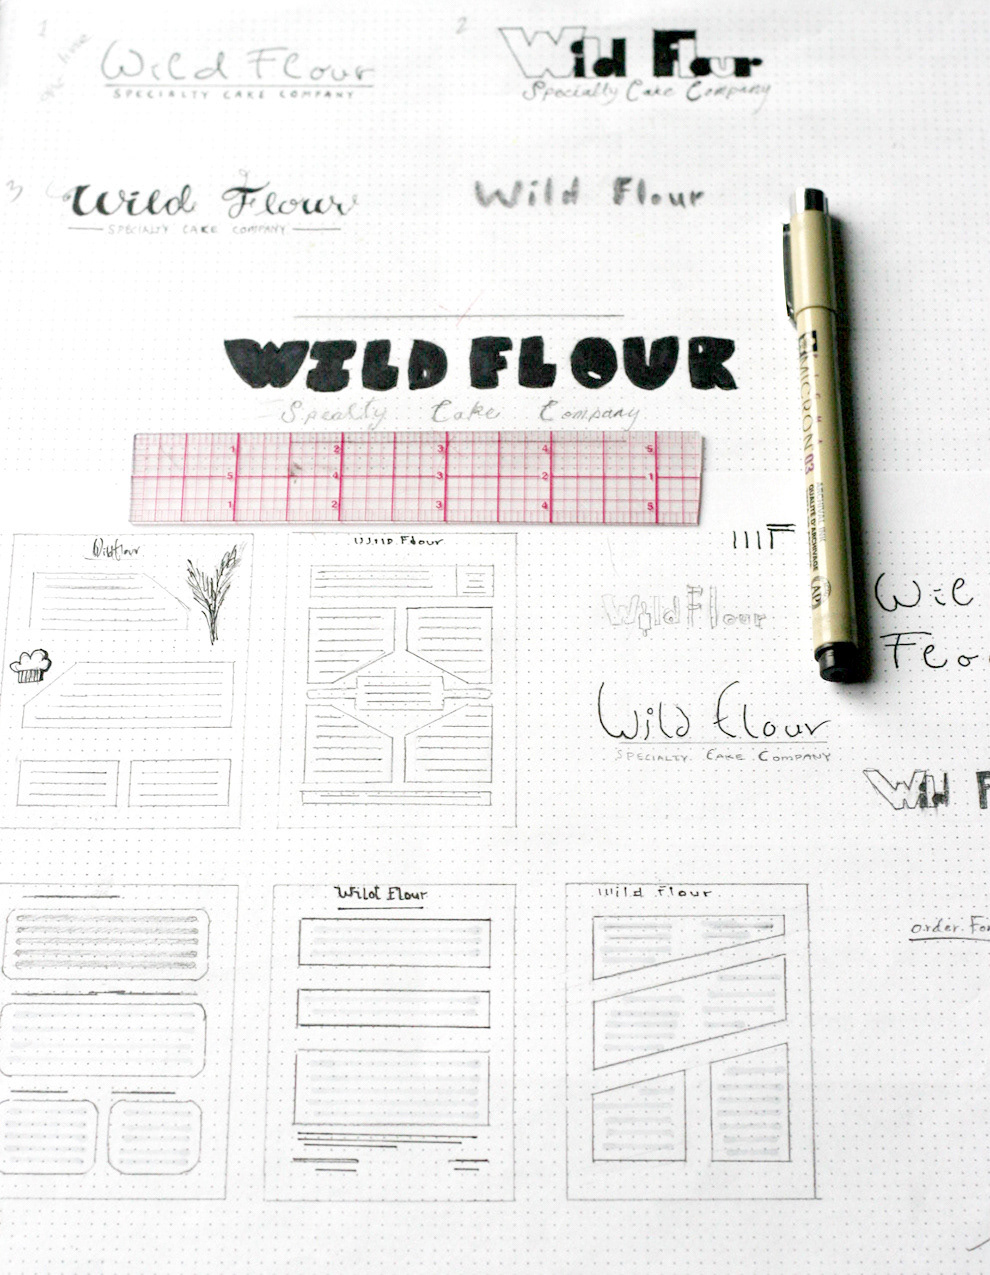 1
2
one line
Wild Flour
SPECIALTY CAKE COMPANY
Wild Flour
Specialty Cake Company
3
Wild Flour
SPECIALTY CAKE COMPANY
Wild Flour
WILD FLOUR
Spealty Cake Company
1 2 3 4 5
5 4 3 2 1
1 2 3 4 5
MICRON 03
ARCHIVAL INK
QUALITÉ D'ARCHIVAGE
AP
Wildflour
Wild Flour
Wild Flour
Wil
Flo
Wild Flour
SPECIALTY CAKE COMPANY
Wild F
Wild Flour
Wild Flour
order For